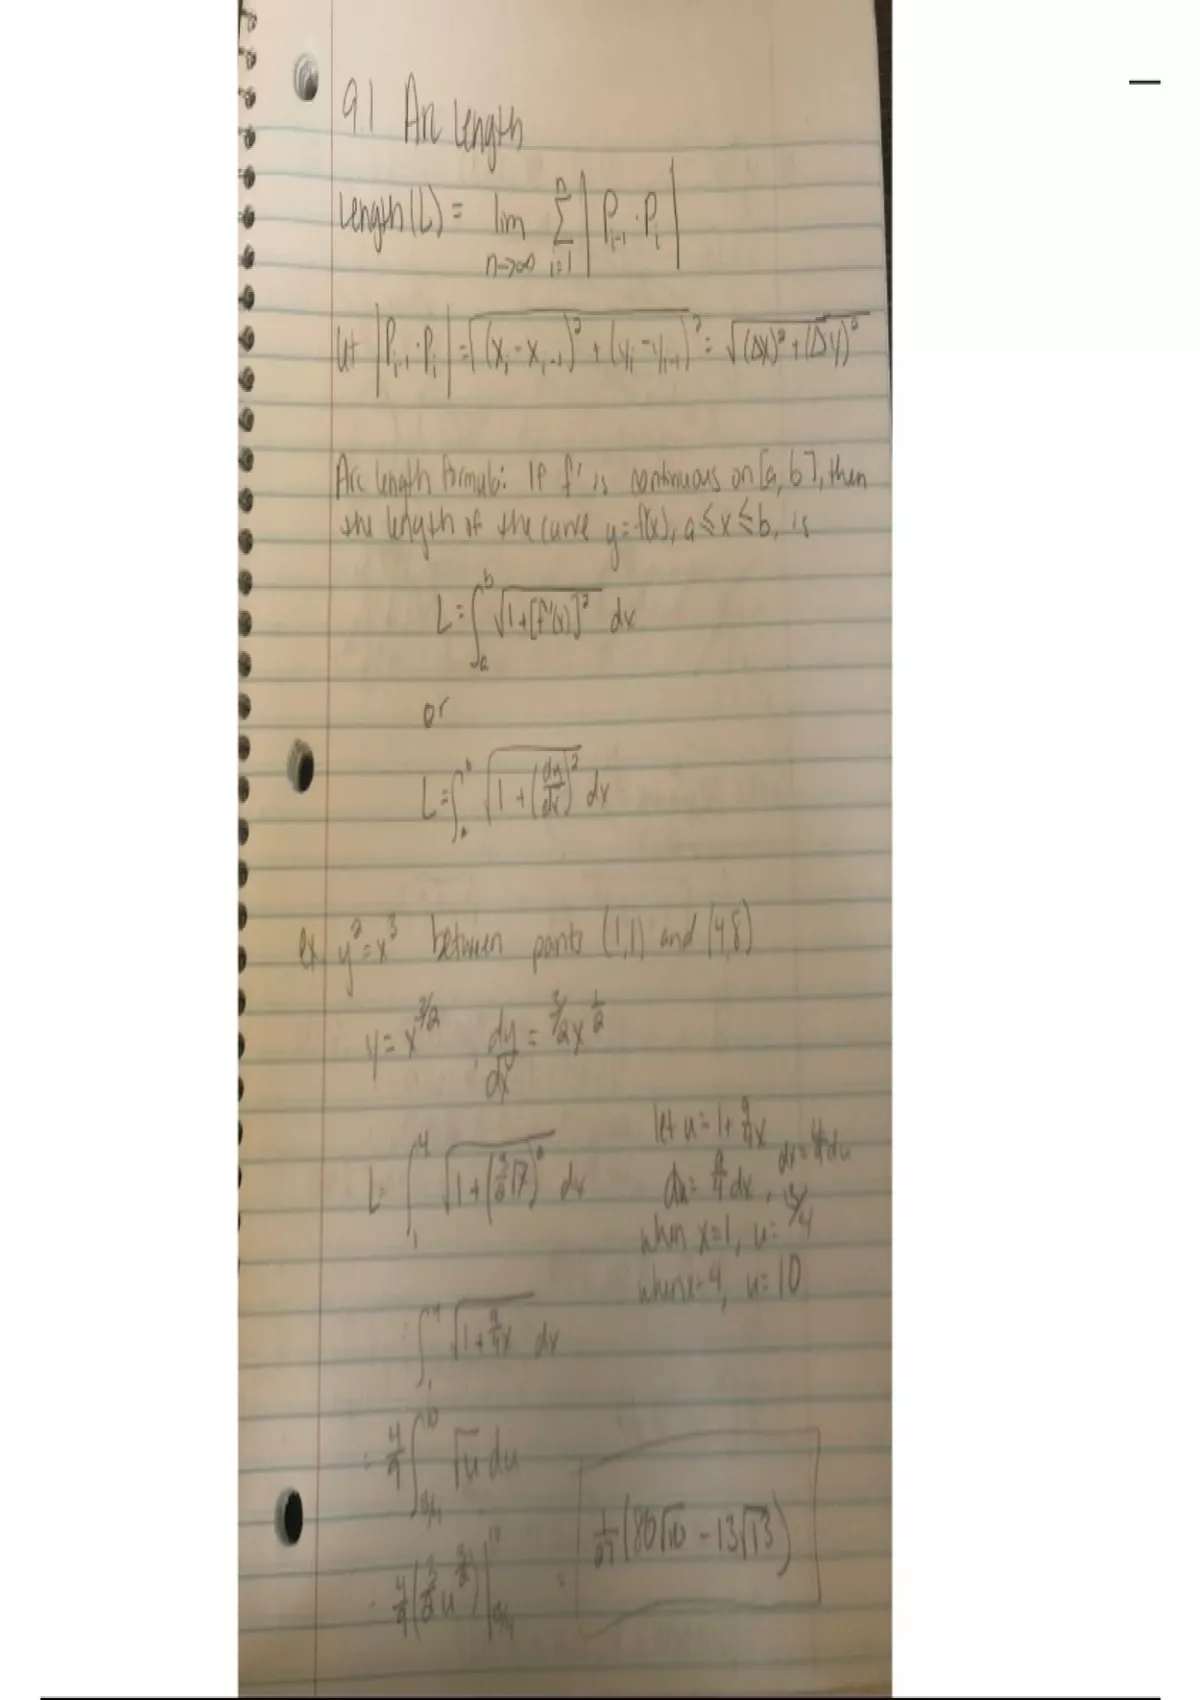 9.1 Arc length
length(L) = lim n→∞ Σ i=1 n |P_{i-1} · P_i|
let |P_{i-1} · P_i| = √((x_i - x_{i-1})² + (y_i - y_{i-1})²) = √((Δx)² + (Δy)²)
Arc length formula: If f' is continuous on [a, b], then
the length of the curve y = f(x), a ≤ x ≤ b, is
L = ∫_a^b √(1+[f'(x)]²) dx
or
L = ∫_a^b √(1 + (dy/dx)²) dx
ex y² = x³ between points (1,1) and (4,8)
y = x^{3/2} , dy/dx = 3/2 x^{1/2}
L = ∫_1^4 √(1 + (3/2 √x)²) dx
let u = 1 + 9/4 x
du = 9/4 dx, dx = 4/9 du
when x = 1, u = 13/4
when x = 4, u = 10
∫_1^4 √(1 + 9/4 x) dx
= 4/9 ∫_{13/4}^{10} √u du
= 4/9 ( u^{3/2}) |_{13/4}^{10} = 1/27 (80√10 - 13√13)